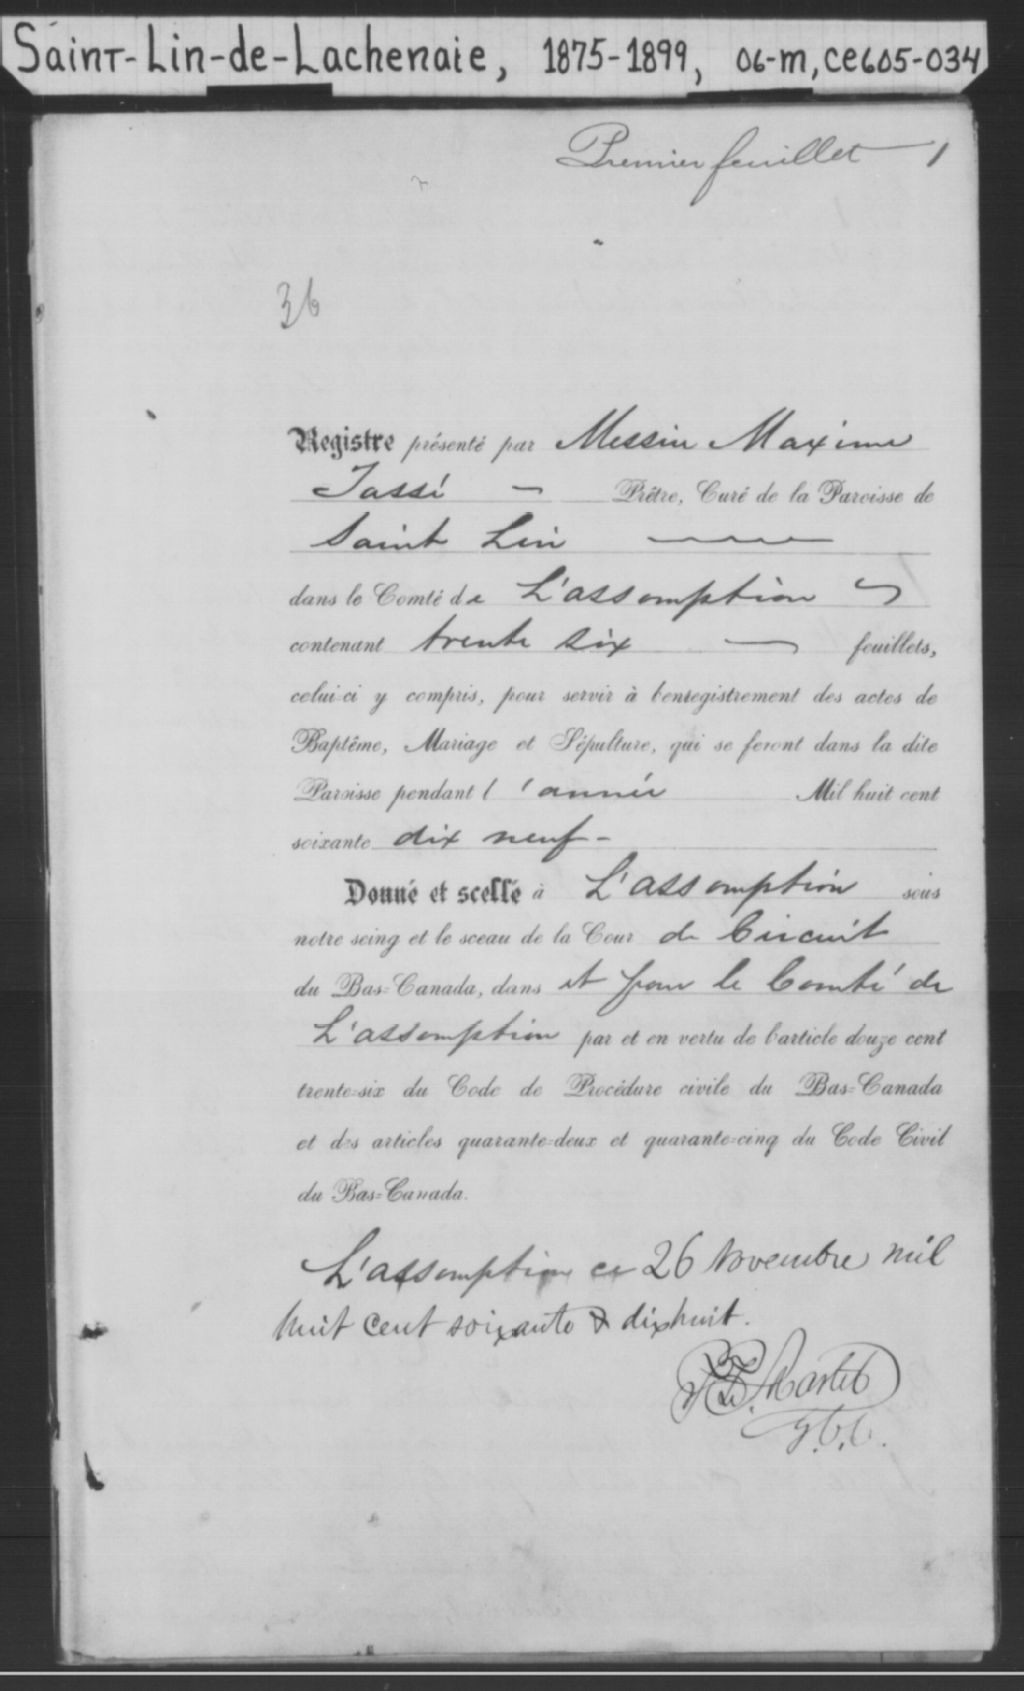 Saint-Lin-de-Lachenaie, 1875-1899, 06-m, ce605-034
Premier feuillet 1
36
Registre présenté par Messire Maxime
Tassé — Prêtre, Curé de la Paroisse de
Saint Lin
dans le Comté de L'assomption
contenant trente six — feuillets,
celui-ci y compris, pour servir à l'enregistrement des actes de
Baptême, Mariage et Sépulture, qui se feront dans la dite
Paroisse pendant l'année Mil huit cent
soixante dix neuf -
Donné et scellé à L'assomption sous
notre seing et le sceau de la Cour de Circuit
du Bas-Canada, dans et pour le Comté de
L'assomption par et en vertu de l'article douze cent
trente-six du Code de Procédure civile du Bas-Canada
et des articles quarante-deux et quarante-cinq du Code Civil
du Bas-Canada.
L'assomption ce 26 Novembre mil
huit cent soixante & dixhuit.
Martel